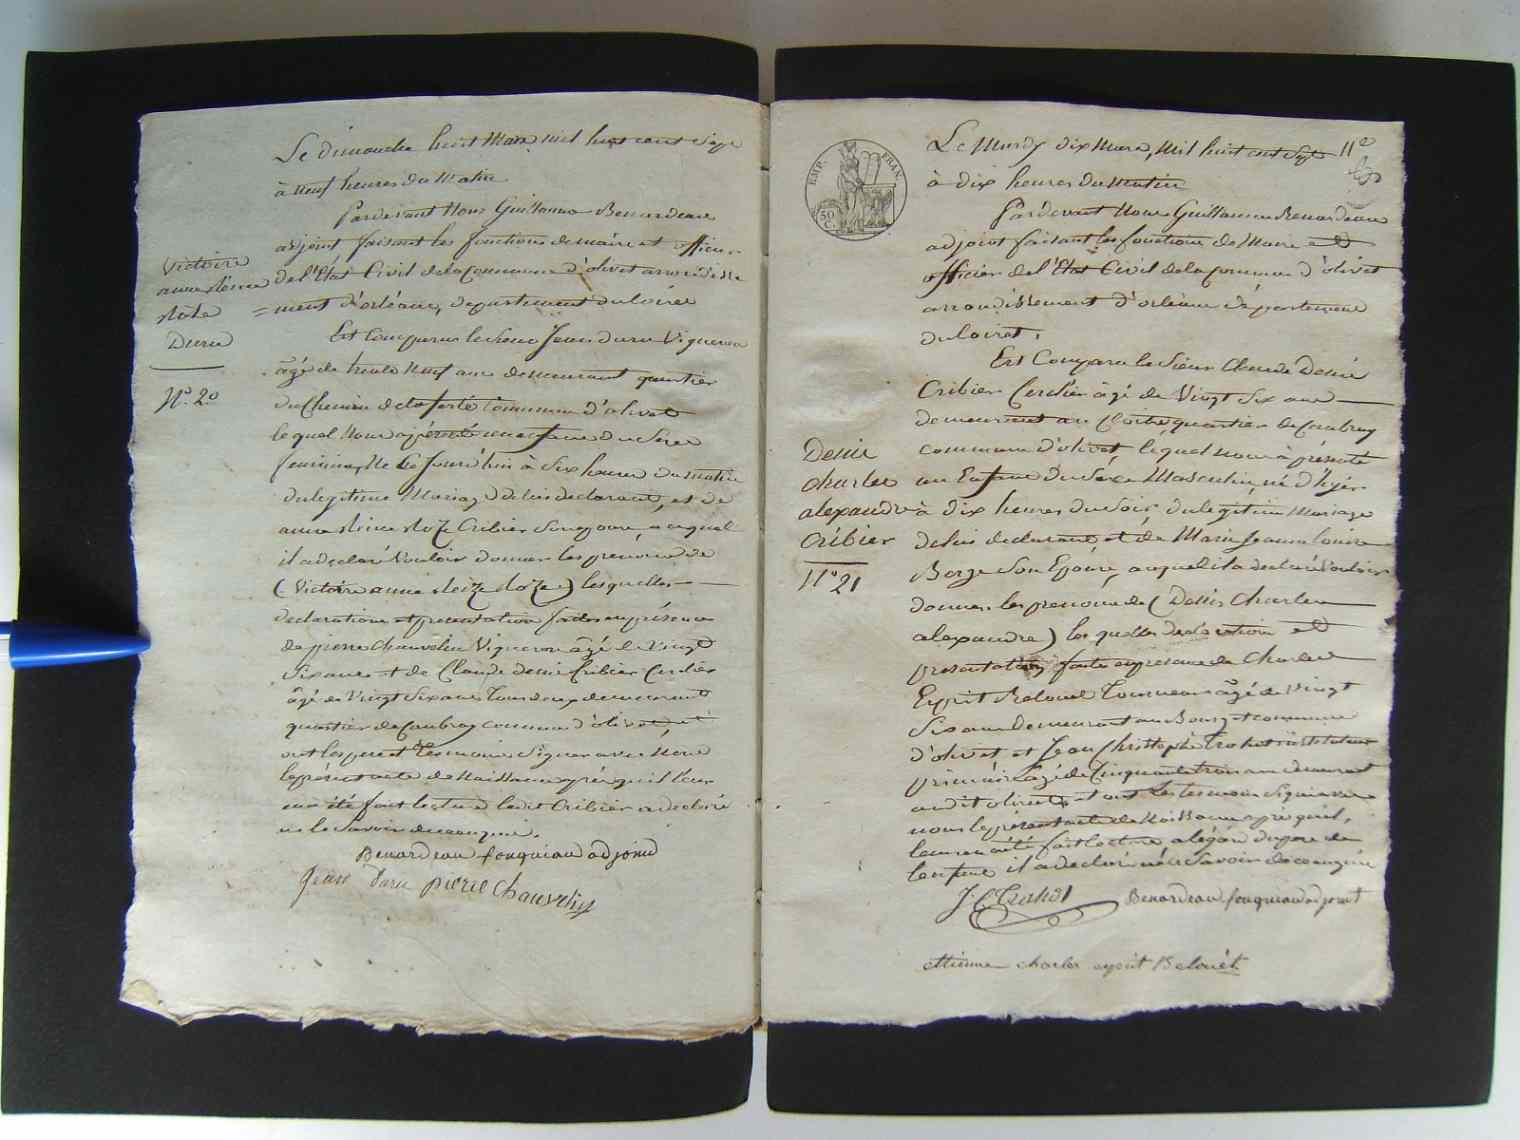 Le dimanche huit Mars mil huit cent Sept
à neuf heures du Matin
Pardevant Nous Guillaume Benardeau
adjoint faisant les fonctions de maire et officier
de l'Etat Civil de la Commune d'olivet arrondisse
= ment d'orléans, departement du loiret
Est Comparu le sieur Jean duru Vigneron
âgé de trente neuf ans demeurant quartier
du Chemin de la ferté Commune d'olivet
lequel Nous a présenté un enfant du Sexe
feminin, Né Ce Jourd'hui à Six heures du matin
du legitime Mariage de lui declarant, et de
anne Cribier Son epouse, auquel
il a declaré Vouloir donner les prenoms de
(Victoire anne) lesquelles
declaration et presentation faites en présence
de pierre Chauvelin Vigneron âgé de Vingt
Six ans et de Claude denis Cribier Cerclier
âgé de Vingt Six ans tous deux demeurant
quartier de Coubray commune d'olivet, et
ont les pere et temoins Signer avec Nous
le présent acte de Naissance après qu'il leur
en a été fait lecture ledit Cribier a declaré
ne le Savoir de ce enquis.
Benardeau fouqueau adjoint
Jean Duru pierre Chauvelin
Victoire
anne
Duru
N.° 20
EMP. FRAN.
50 C.
Le Mardy dix Mars, Mil huit cent Sept 11e
à dix heures du Matin
Pardevant Nous Guillaume Benardeau
adjoint faisant les fonctions de Maire et
officier de l'Etat Civil de la Commune d'olivet
arrondissement d'orléans département
du loiret,
Est Comparu le Sieur Claude Denis
Cribier Cerclier âgé de Vingt Six ans
demeurant au Cloitre, quartier de Coubray
commune d'olivet, lequel nous à présenté
un Enfant du Sexe Masculin, né d'hyer
à dix heures du Soir, du legitime Mariage
de lui declarant, et de Marie Jeanne louise
Son Epouse, auquel il a declaré Vouloir
donner les prenoms de (Denis Charles
alexandre) lesquelles declaration et
presentation faite en presence de Charles
Esprit Tourneur âgé de Vingt
Six ans demeurant au Bourg et commune
d'olivet et Jean Christophe instituteur
primaire âgé de Cinquante trois ans demeurant
audit olivet et ont les temoins Signer avec
nous le présent acte de Naissance après qu'il,
leur en a été fait lecture a légard du pere de
lenfant il a declaré ne le Savoir de ce enquis
Benardeau fouqueau adjoint
etienne charles esprit
Denis
Charles
alexandre
Cribier
N.° 21